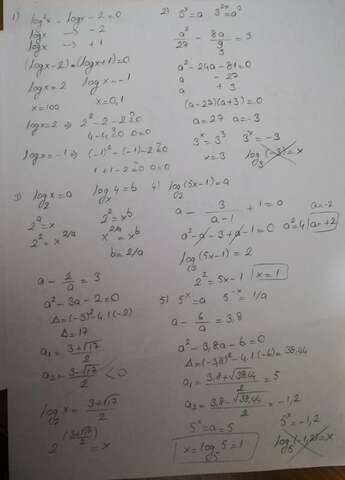 1) log²x - logx - 2 = 0
logx → -2
logx → +1
(logx-2)·(logx+1)=0
logx=2 logx=-1
x=100 x=0,1
logx=2 ⇒ 2²-2-2≟0
4-4≟0 0=0
logx=-1 ⇒ (-1)²-(-1)-2≟0
1+1-2≟0 0=0
2) 3^x=a 3^2x=a²
a²/27 - 8a/9 = 3
3
a²-24a-81=0
a -27
a +3
(a-27)(a+3)=0
a=27 a=-3
3^x=3³ 3^x=-3
x=3 log₃(-3)=x
3) log₂x=a logₓ4=b
2^a=x 2²=x^b
2²=x^2/a x^2/a=x^b
b=2/a
a - 2/a = 3
a²-3a-2=0
Δ=(-3)²-4.1.(-2)
Δ=17
a₁=3+√17/2
a₂=3-√17/2 <0
log₂x=3+√17/2
2^(3+√17/2)=x
4) log₂(5x-1)=a
a - 3/a-1 + 1 = 0 a=-2
a²-a-3+a-1=0 a²=4 a=+2
log₂(5x-1)=2
2²=5x-1 x=1
5) 5^x=a 5^-x=1/a
a - 6/a = 3,8
a²-3,8a-6=0
Δ=(-3,8)²-4.1.(-6)=38,44
a₁=3,8+√38,44/2=5
a₂=3,8-√38,44/2=-1,2
5^x=a=5 5^x=-1,2
x=log₅5=1 log₅(-1,2)=x